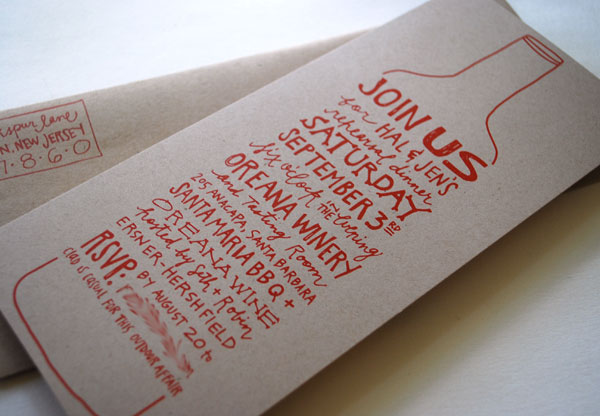 JOIN US
for HAL & JEN'S
rehearsal dinner
SATURDAY
SEPTEMBER 3RD
six o'clock IN THE evening
OREANA WINERY
and Tasting Room
205 ANACAPA, SANTA BARBARA
SANTA MARIA BBQ +
OREANA WINE
hosted by Seh + Robin
ERSNER-HERSHFIELD
RSVP. BY AUGUST 20th
CLAD IS CASUAL FOR THIS OUTDOOR AFFAIR
spur lane
N, NEW JERSEY
7.8.6.0